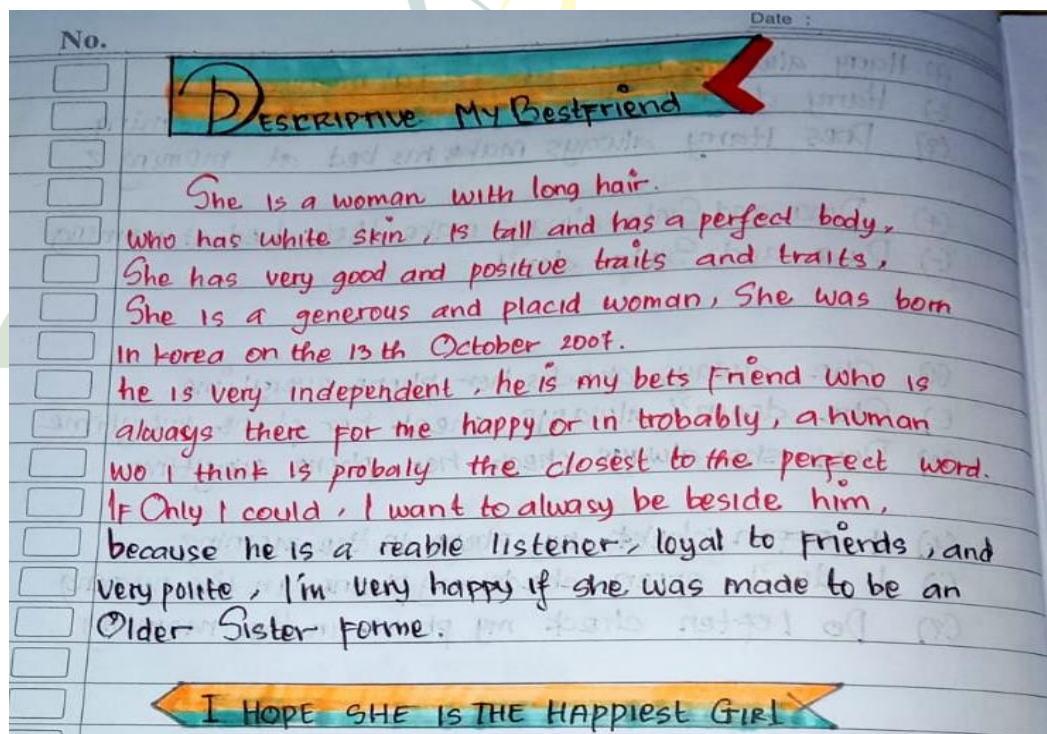 No.
Date :
DESCRIPTIVE MY BestFriend
She is a woman with long hair.
who has white skin, is tall and has a perfect body,
She has very good and positive traits and traits,
She is a generous and placid woman, She was born
in korea on the 13 th October 2007.
he is very independent, he is my bets Friend who is
always there For me happy or in trobably, a human
wo i think is probaly the closest to the perfect word.
IF Only I could, I want to alwasy be beside him,
because he is a reable listener, loyal to Friends, and
very polite, I'm very happy if she was made to be an
Older Sister Forme.
I HOPE SHE IS THE HAPPIEST GIRL